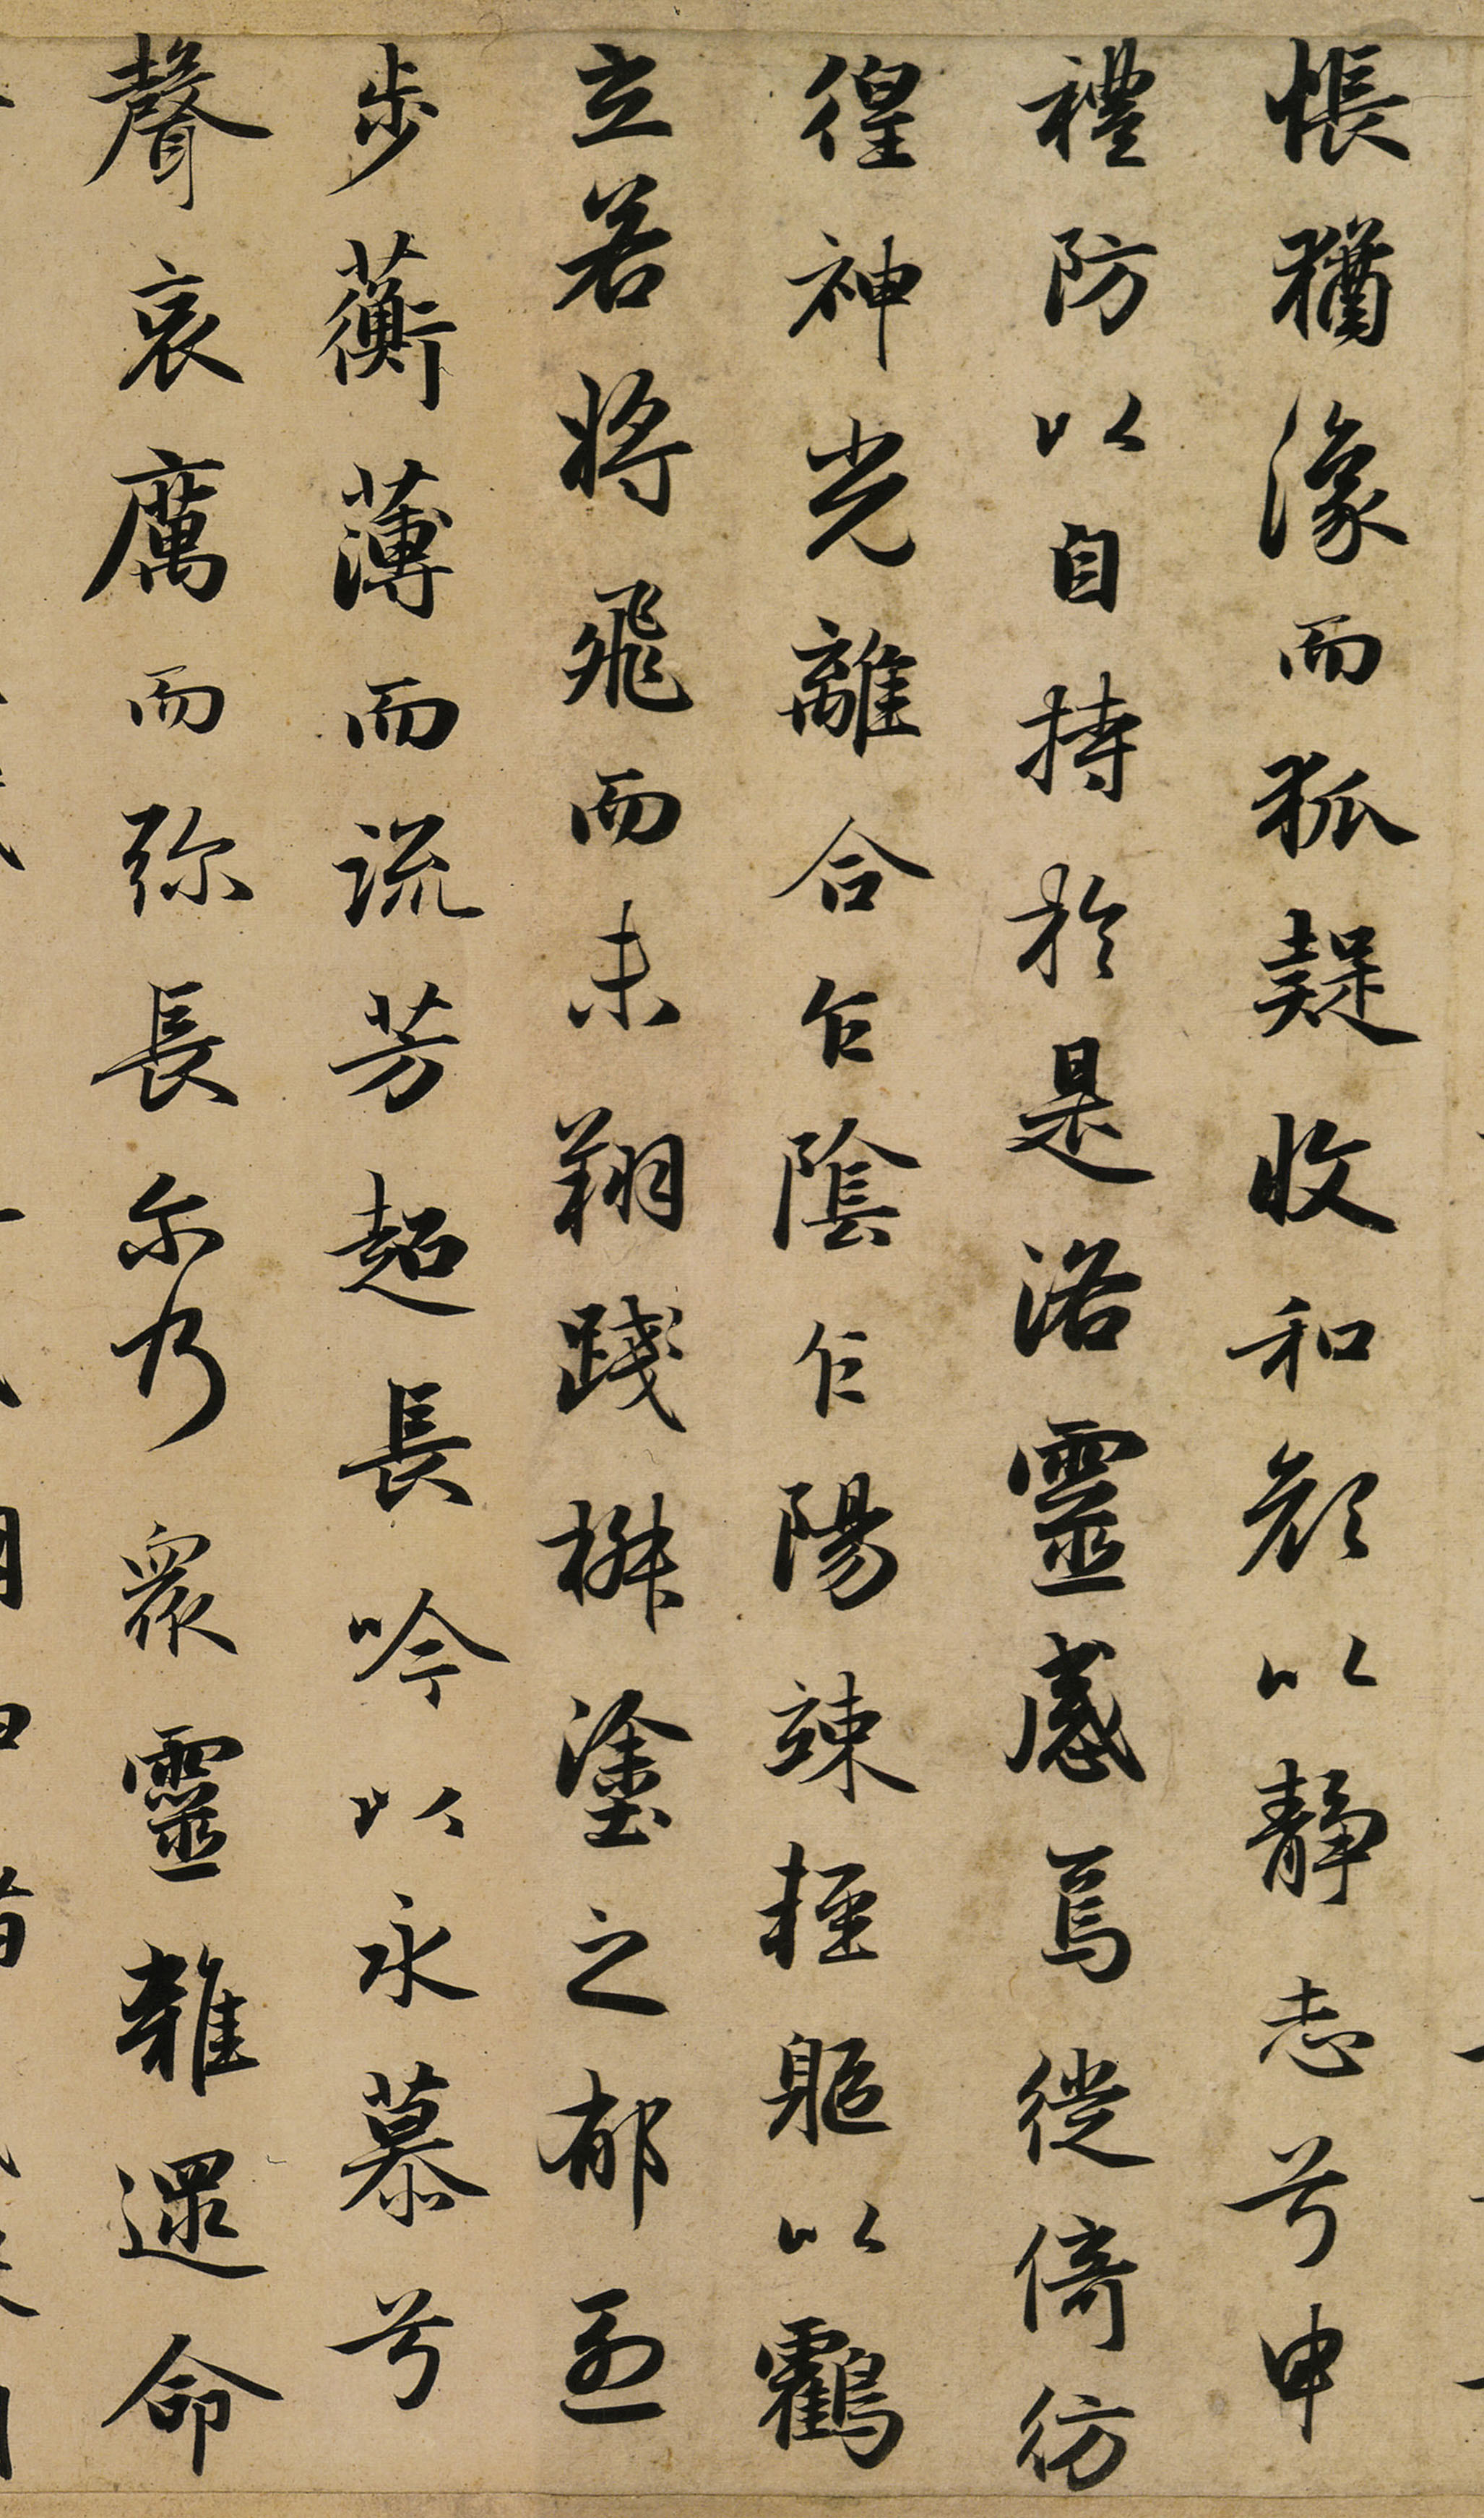 悵猶𧰼而狐疑收和顔以靜志兮申
禮防以自持於是洛靈感焉徙倚彷
徨神光離合乍陰乍陽竦輕軀以鶴
立若將飛而未翔踐椒塗之郁烈
步蘅薄而流芳超長吟以永慕兮
聲哀厲而弥長尔乃衆靈雜遝命